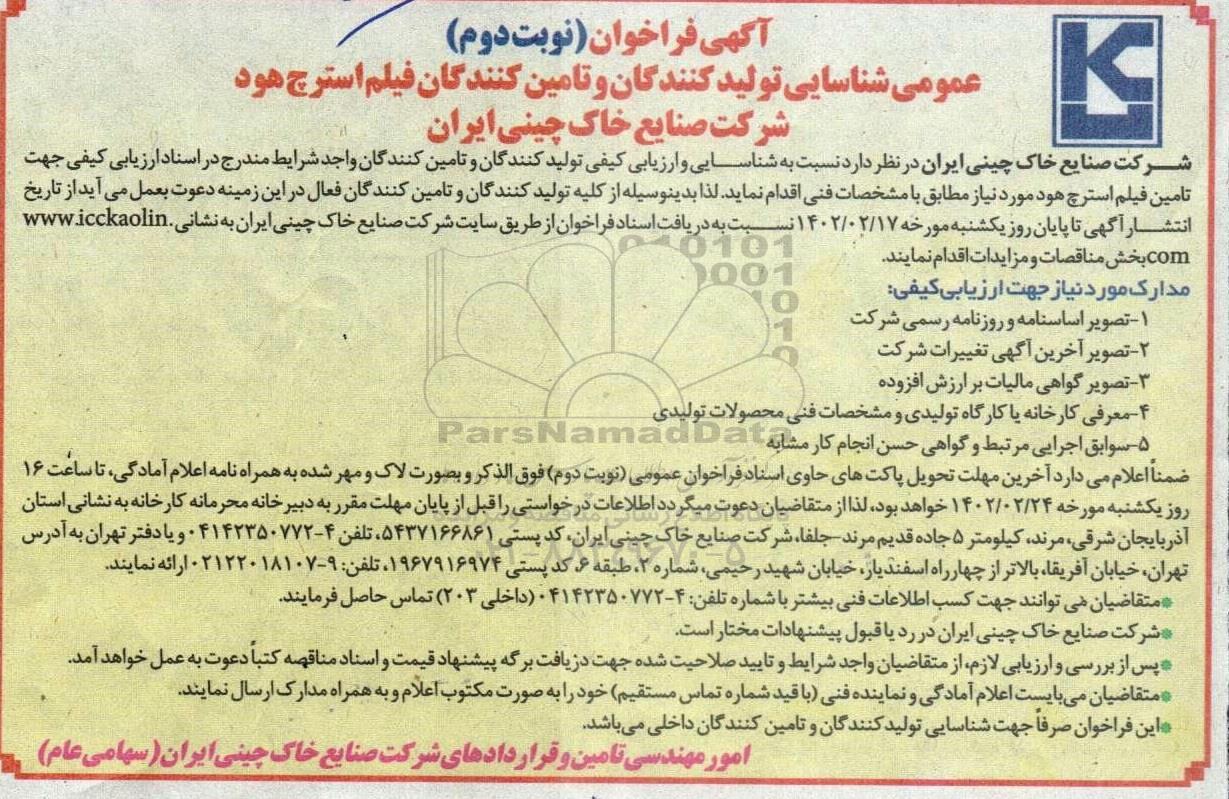 آگهی فراخوان (نوبت دوم)
عمومی شناسایی تولید کنندگان و تامین کنندگان فیلم استرچ هود
شرکت صنایع خاک چینی ایران
شرکت صنایع خاک چینی ایران در نظر دارد نسبت به شناسایی و ارزیابی کیفی تولید کنندگان و تامین کنندگان واجد شرایط مندرج در اسناد ارزیابی کیفی جهت
تامین فیلم استرچ هود مورد نیاز مطابق با مشخصات فنی اقدام نماید. لذا بدینوسیله از کلیه تولید کنندگان و تامین کنندگان فعال در این زمینه دعوت بعمل می آید از تاریخ
انتشار آگهی تا پایان روز یکشنبه مورخه ۱۴۰۲/۰۲/۱۷ نسبت به دریافت اسناد فراخوان از طریق سایت شرکت صنایع خاک چینی ایران به نشانی www.icckaolin.
com بخش مناقصات و مزایدات اقدام نمایند.
مدارک مورد نیاز جهت ارزیابی کیفی:
۱-تصویر اساسنامه و روزنامه رسمی شرکت
۲-تصویر آخرین آگهی تغییرات شرکت
۳-تصویر گواهی مالیات بر ارزش افزوده
۴-معرفی کارخانه یا کارگاه تولیدی و مشخصات فنی محصولات تولیدی
۵-سوابق اجرایی مرتبط و گواهی حسن انجام کار مشابه
ضمناً اعلام می دارد آخرین مهلت تحویل پاکت های حاوی اسناد فراخوان عمومی (نوبت دوم) فوق الذکر و بصورت لاک و مهر شده به همراه نامه اعلام آمادگی، تا ساعت ۱۶
روز یکشنبه مورخه ۱۴۰۲/۰۲/۲۴ خواهد بود، لذا از متقاضیان دعوت میگردد اطلاعات درخواستی را قبل از پایان مهلت مقرر به دبیرخانه محرمانه کارخانه به نشانی استان
آذربایجان شرقی، مرند، کیلومتر ۵ جاده قدیم مرند-جلفا، شرکت صنایع خاک چینی ایران، کد پستی ۵۴۳۷۱۶۶۸۶۱، تلفن ۴-۰۴۱۴۲۳۵۰۷۷۲ و یا دفتر تهران به آدرس
تهران، خیابان آفریقا، بالاتر از چهارراه اسفندیار، خیابان شهید رحیمی، شماره ۲، طبقه ۶، کد پستی ۱۹۶۷۹۱۶۹۷۴، تلفن: ۹-۰۲۱۲۲۰۱۸۱۰۷ ارائه نمایند.
*متقاضیان می توانند جهت کسب اطلاعات فنی بیشتر با شماره تلفن: ۴-۰۴۱۴۲۳۵۰۷۷۲ (داخلی ۲۰۳) تماس حاصل فرمایند.
*شرکت صنایع خاک چینی ایران در رد یا قبول پیشنهادات مختار است.
*پس از بررسی و ارزیابی لازم، از متقاضیان واجد شرایط و تایید صلاحیت شده جهت دریافت برگه پیشنهاد قیمت و اسناد مناقصه کتباً دعوت به عمل خواهد آمد.
*متقاضیان می‌بایست اعلام آمادگی و نماینده فنی (با قید شماره تماس مستقیم) خود را به صورت مکتوب اعلام و به همراه مدارک ارسال نمایند.
*این فراخوان صرفاً جهت شناسایی تولیدکنندگان و تامین کنندگان داخلی می‌باشد.
امور مهندسی تامین و قراردادهای شرکت صنایع خاک چینی ایران (سهامی عام)
ParsNamadData